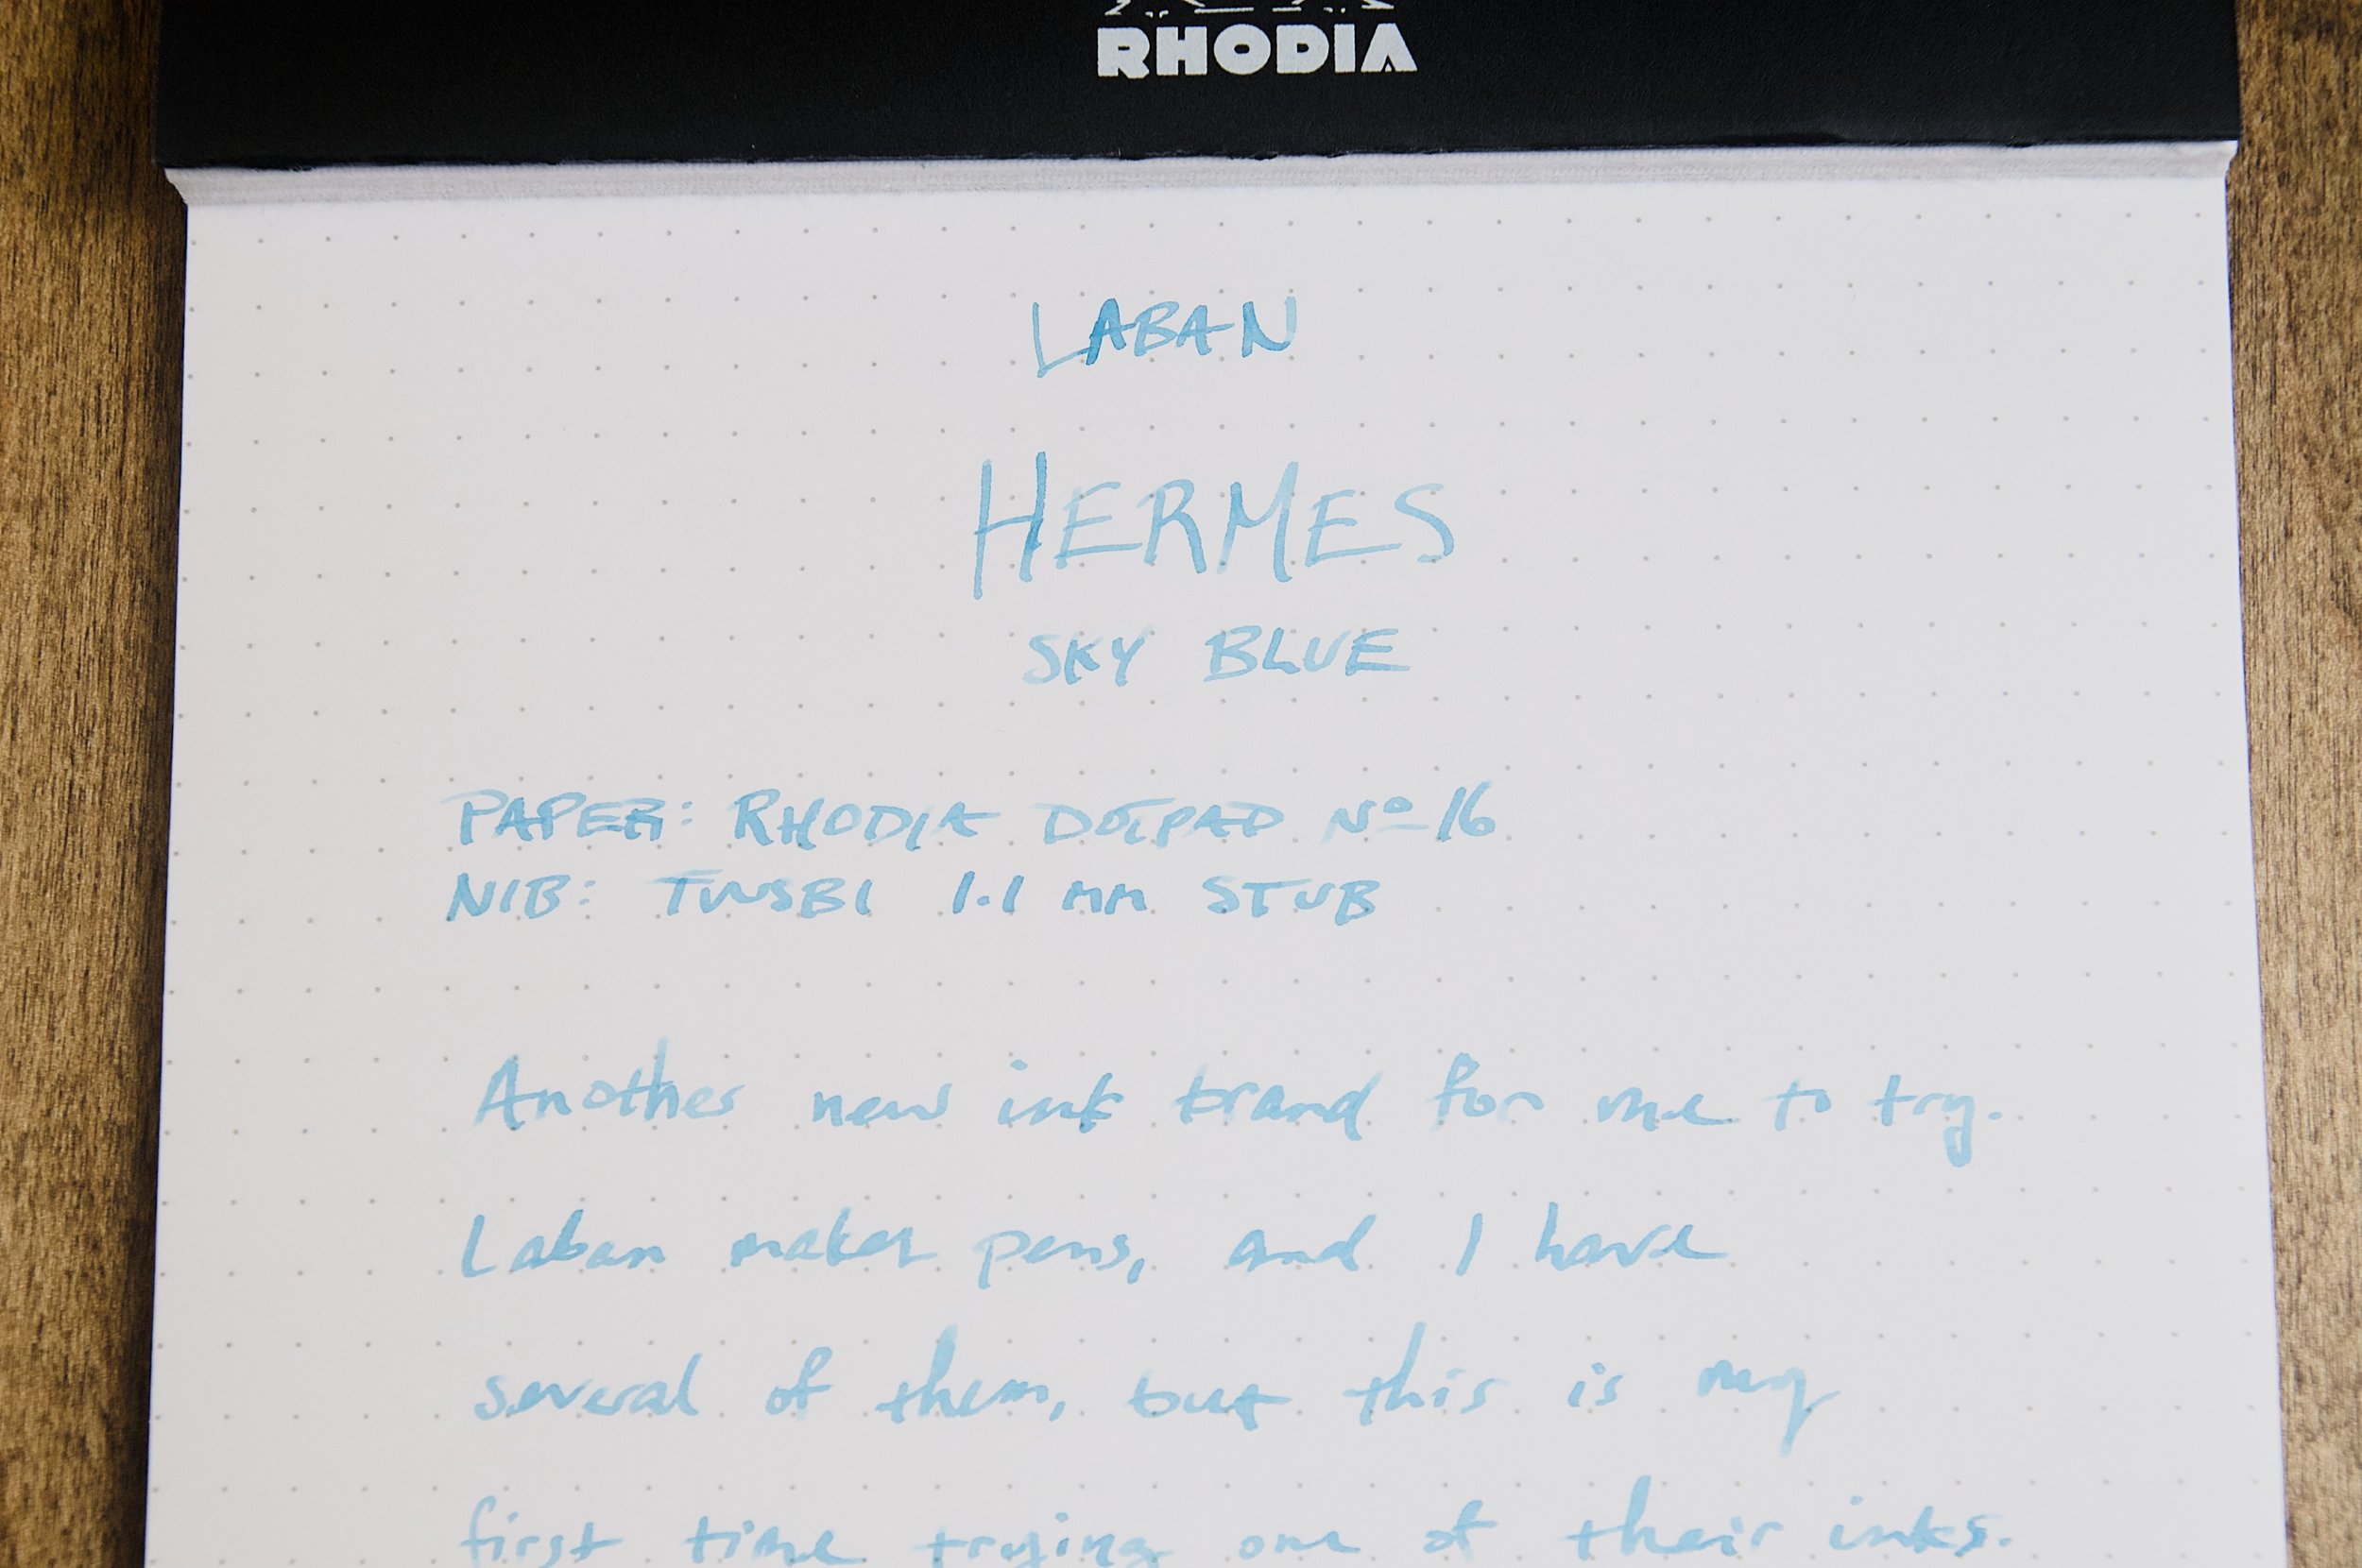 RHODIA
LABAN
HERMES
SKY BLUE
PAPER: RHODIA DOTPAD Nº 16
NIB: TWSBI 1.1 mm STUB
Another new ink brand for me to try.
Laban makes pens, and I have
several of them, but this is my
first time trying one of their inks.